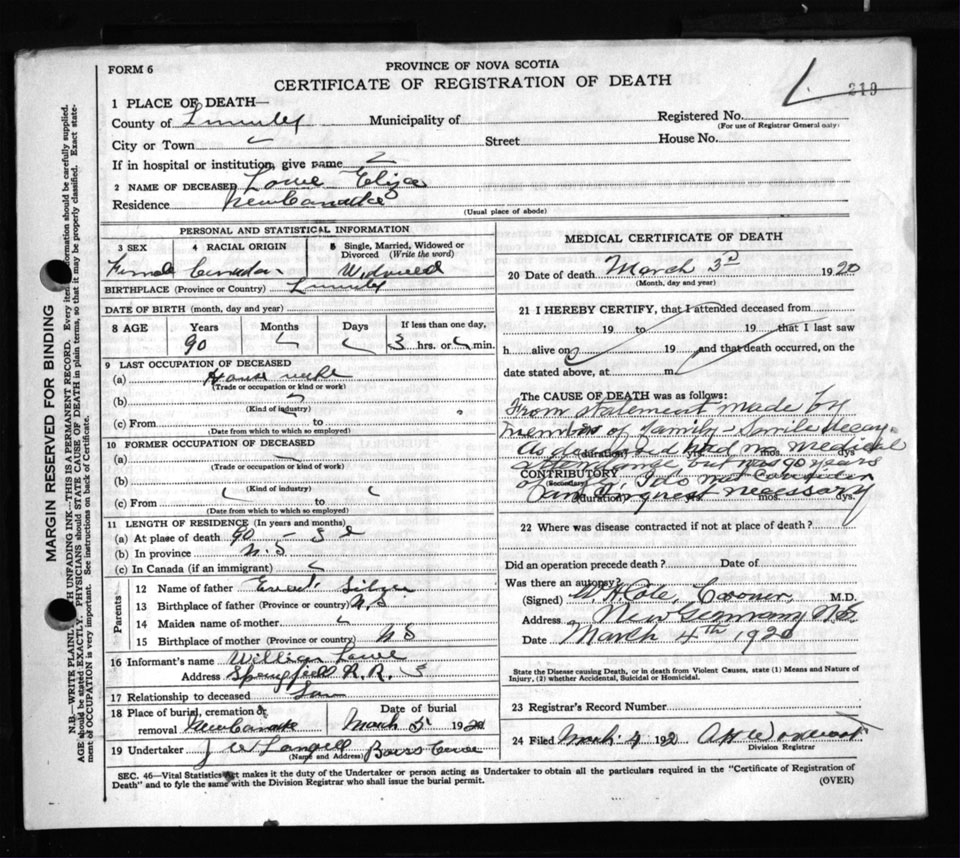 PROVINCE OF NOVA SCOTIA
FORM 6
CERTIFICATE OF REGISTRATION OF DEATH
219
1 PLACE OF DEATH—
County of Municipality of Registered No.
(For use of Registrar General only)
City or Town Street House No.
If in hospital or institution, give name
2 NAME OF DECEASED Lowe Eliza
Residence
(Usual place of abode)
PERSONAL AND STATISTICAL INFORMATION
3 SEX 4 RACIAL ORIGIN 5 Single, Married, Widowed or Divorced (Write the word)
Female Canadian Widowed
BIRTHPLACE (Province or Country)
DATE OF BIRTH (month, day and year)
8 AGE Years Months Days If less than one day,
90 3 hrs. or min.
9 LAST OCCUPATION OF DECEASED
(a)
(Trade or occupation or kind or work)
(b)
(Kind of industry)
(c) From to
(Date from which to which so employed)
10 FORMER OCCUPATION OF DECEASED
(a)
(Trade or occupation or kind of work)
(b)
(Kind of industry)
(c) From to
(Date from which to which so employed)
11 LENGTH OF RESIDENCE (In years and months)
(a) At place of death 90
(b) In province N.S
(c) In Canada (if an immigrant)
Parents
12 Name of father
13 Birthplace of father (Province or country) N.S.
14 Maiden name of mother
15 Birthplace of mother (Province or country) N S
16 Informant's name William Lowe
Address Springfield R.R. 5
17 Relationship to deceased Son
18 Place of burial, cremation or removal Date of burial
March 5 1920
19 Undertaker J W Langille
(Name and Address)
MEDICAL CERTIFICATE OF DEATH
20 Date of death March 3rd 1920
(Month, day and year)
21 I HEREBY CERTIFY, that I attended deceased from
19 to 19 that I last saw
h alive on 19 and that death occurred, on the
date stated above, at m.
The CAUSE OF DEATH was as follows:
From statement made by
members of family - Senile decay.
(duration) yrs. mos. dys.
As had no medical
attendance but was 90 years
CONTRIBUTORY
(Secondary)
of age, I do not consider
an inquest necessary
(duration) mos. dys.
22 Where was disease contracted if not at place of death?
Did an operation precede death? Date of
Was there an autopsy?
(Signed) W H Cole Coroner, M.D.
Address New Germany N.S.
Date March 4th 1920
State the Disease causing Death, or in death from Violent Causes, state (1) Means and Nature of
Injury, (2) whether Accidental, Suicidal or Homicidal.
23 Registrar's Record Number
24 Filed March 4 192
Division Registrar
SEC. 46—Vital Statistics Act makes it the duty of the Undertaker or person acting as Undertaker to obtain all the particulars required in the "Certificate of Registration of
Death" and to fyle the same with the Division Registrar who shall issue the burial permit. (OVER)
MARGIN RESERVED FOR BINDING
N.B.—WRITE PLAINLY UNFADING INK—THIS IS A PERMANENT RECORD. Every item information should be carefully supplied.
AGE should be stated EXACTLY. PHYSICIANS should STATE CAUSE OF DEATH in plain terms, so that it may be properly classified. Exact state-
ment of OCCUPATION is very important. See instructions on back of Certificate.